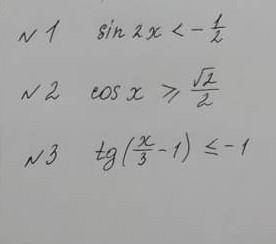 №1 sin 2x < -1/2
№2 cos x ⩾ √2/2
№3 tg(x/3 - 1) ≤ -1